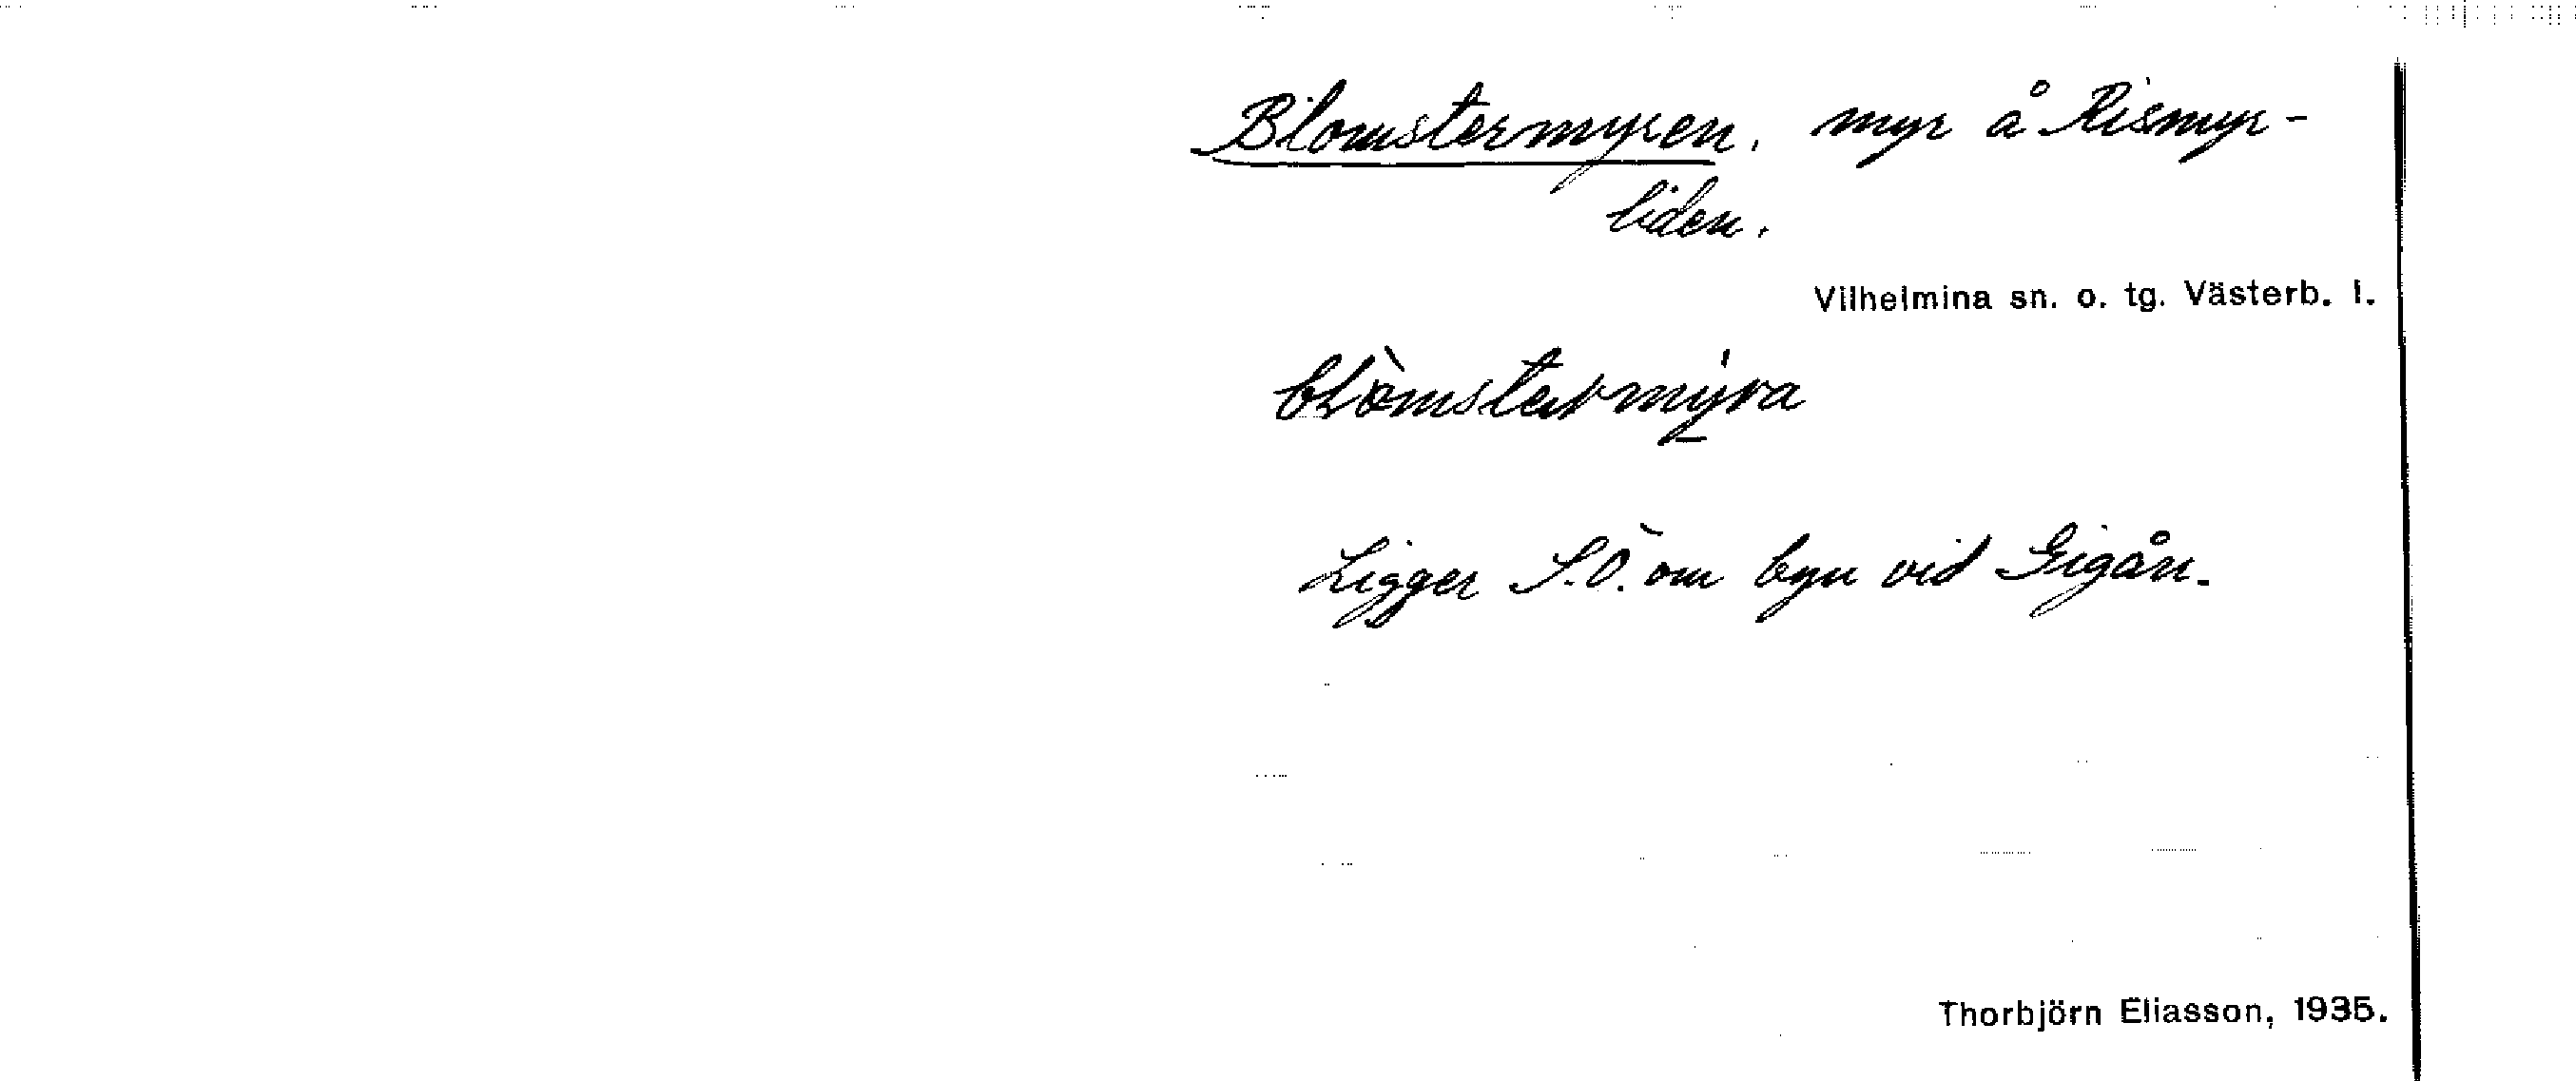 Blomstermyren. myr å Rismyr-
liden.
Vilhelmina sn. o. tg. Västerb. l.
blòmstermýra
Ligger S.Ö. om byn vid Gigån.
Thorbjörn Eliasson, 1935.